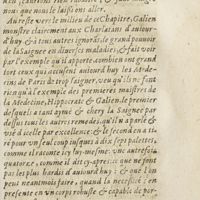 que nous ne la laissions aller.
Au reste vers le milieu de ce Chapitre, Galien
monstre clairement aux Charlatans d'autour
d'huy & à tous autres ignorãs de grand pouvoir
de la Saignee en diverses maladies, & fait voir
par l'exemple qu'il apporte combien ont grand
tort ceux qui accusent aujourd'huy les Mede-
cins de Paris de trop saigner, veu qu'ils ne font
rien qu'à l'exemple des premiers maistres de
la Medecine, Hippocrate & Galien, le premier
desquels a tant aymé & chery la Saignee par
dessus tous les autres remedes qu'il en a parlé &
usé d'icelle par excellence: & le second en a ti-
ré pour un seul coup jusques à dix sept palettes,
comme il raconte icy luy-mesme: une autrefois
quatorze, comme il dit
pas les plus hardis d'aujourd'huy: & que l'on
peut neantmoins faire, quand la necessité en
presente en un corps robuste & capable de por-